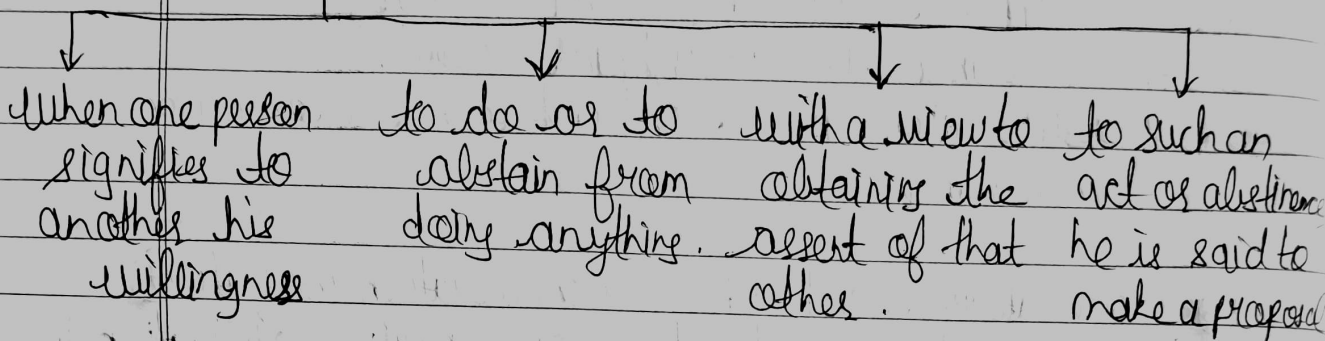 when one person
signifies to
another his
willingness
to do or to
abstain from
doing anything.
with a view to
obtaining the
assent of that
other.
to such an
act or abstinence
he is said to
make a proposal